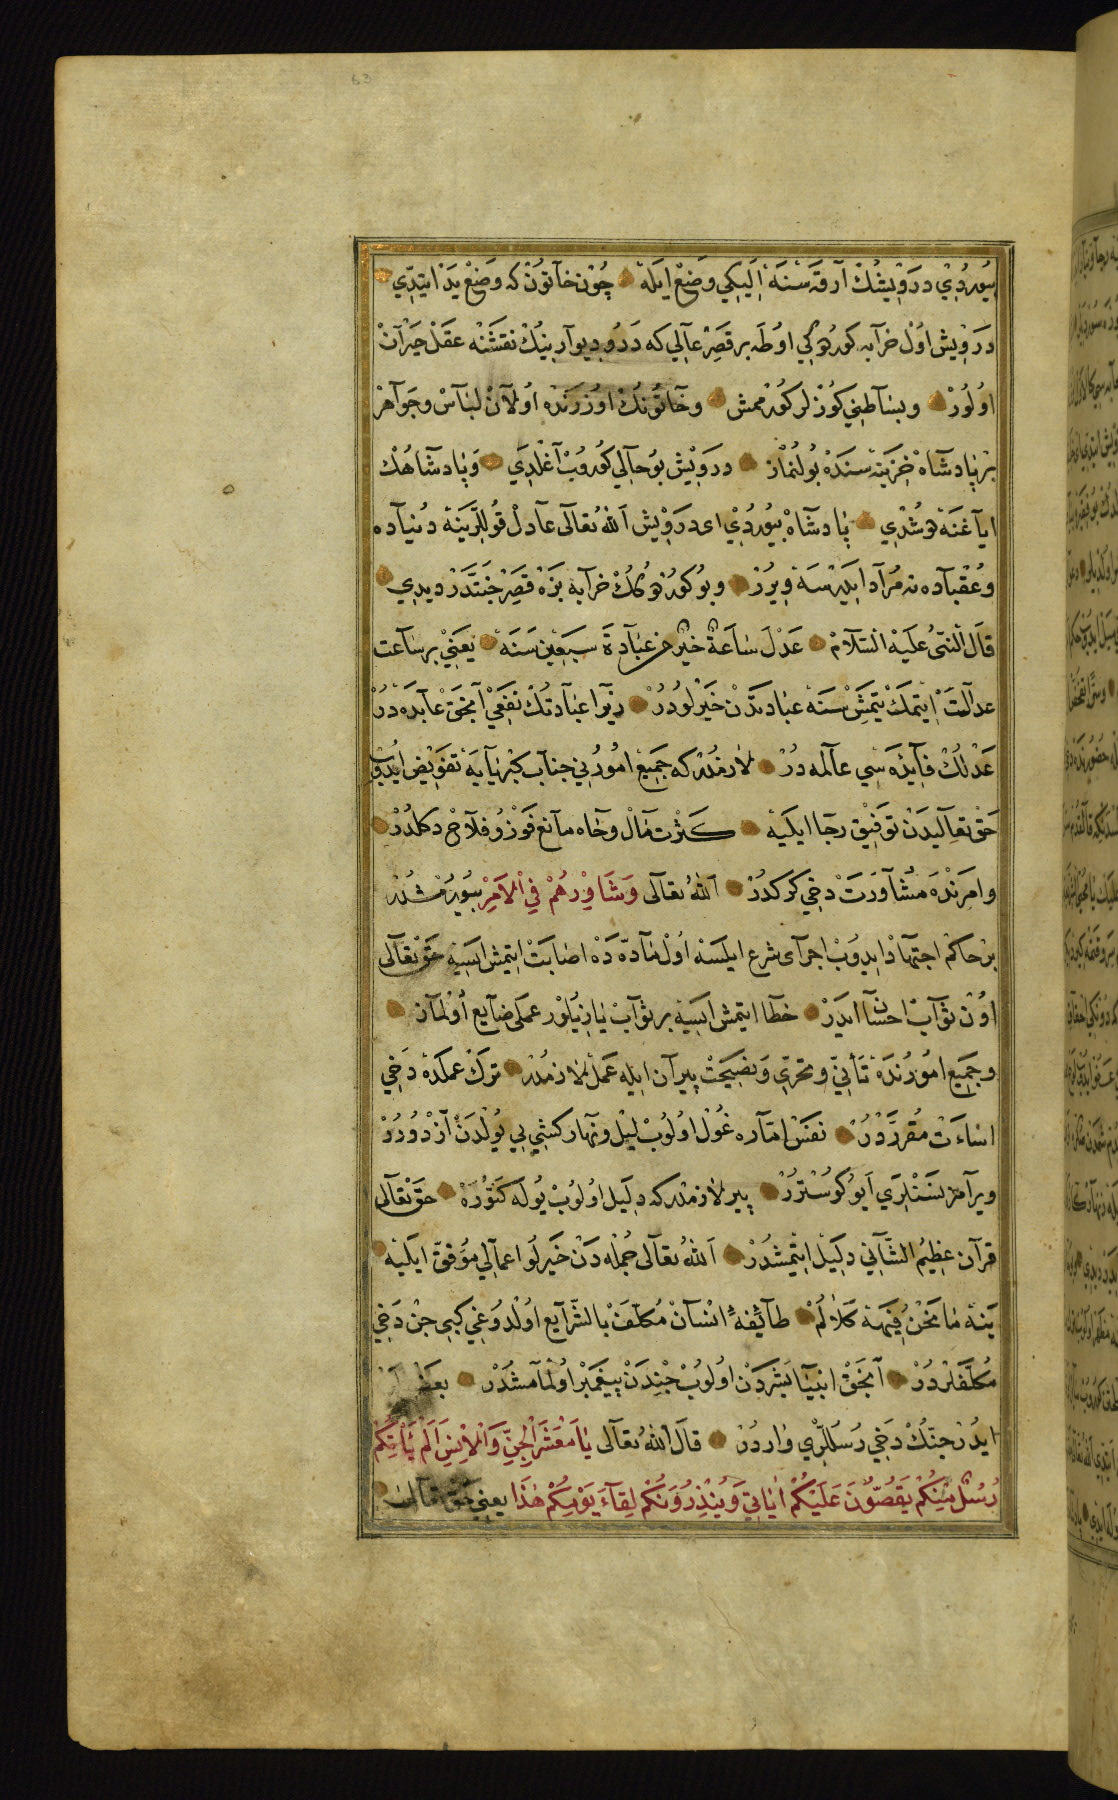 بيوردى درويشك آرقه سنه اليكى وضع ايله چون خاتون كه وضع يد ايتدى
درويش اول خرابه كوردى كى اوطه بر قصر عالى كه در و ديوارينك نقشنه عقل حيران
اولور وبساطنى كوزلر كورمش وخاتونك اوزرنده اولان لباس وجواهر
بر پادشاه خزينه سنده بولنماز درويش بو حالى كوروب آغلدى وپادشاهك
اياغنه دوشدى پادشاه بيوردى اى درويش الله تعالى عادل قوللرينه دنياده
وعقباده نه مراد ايليرسه ويرر وبو كوردوكك خرابه بزه قصر جنتدر ديدى
قال النبى عليه السلام عدل ساعة خير من عبادة سبعين سنة يعنى بر ساعت
عدالت ايتمك يتمش سنه عبادتدن خيرلودر زيرا عبادتك نفعى آنجق عابده در
عدلك فايده سى عالمه در لازمدر كه جميع امورينى جناب كبريايه تفويض ايدوب
حق تعاليدن توفيق رجا ايليه كثرت مال وجاه مانع فوز وفلاح دكلدر
وامرنده مشاورت دخى كركدر الله تعالى وشاورهم فى الامر بيورمشدر
بر حاكم اجتهاد ايدوب اجراى شرع ايلسه اول ماده ده اصابت ايتمش ايسيه حق تعالى
اون ثواب احسان ايدر خطا ايتمش ايسيه بر ثواب يازيلور عملى ضايع اولماز
وجميع امورنده تأنى وتحرى ونصيحت پيران ايله عمل لازمدر ترك عملده دخى
اساءت مقرردر نفس اماره غول اولوب ليل ونهار كشى يى يولدن آزدورر
ويرامز نسنلرى ايو كوسترر پير لازمدر كه دليل اولوب يوله كتوره حق تعالى
قرآن عظيم الشانى دليل ايتمشدر الله تعالى جمله دن خيرلو اعمالى موفق ايليه
ينه ما نحن فيهه كلالم طائفهٔ انسان مكلف بالشرايع اولدوغى كبى جن دخى
مكلفلردر آنجق انبيا بشردن اولوب جندن پيغمبر اولمامشدر
ايدر جنك دخى رسللرى واردر قال الله تعالى يا معشر الجن والانس الم يأتكم
رسل منكم يقصون عليكم اياتى وينذرونكم لقاء يومكم هذا يعنى حق تعالى